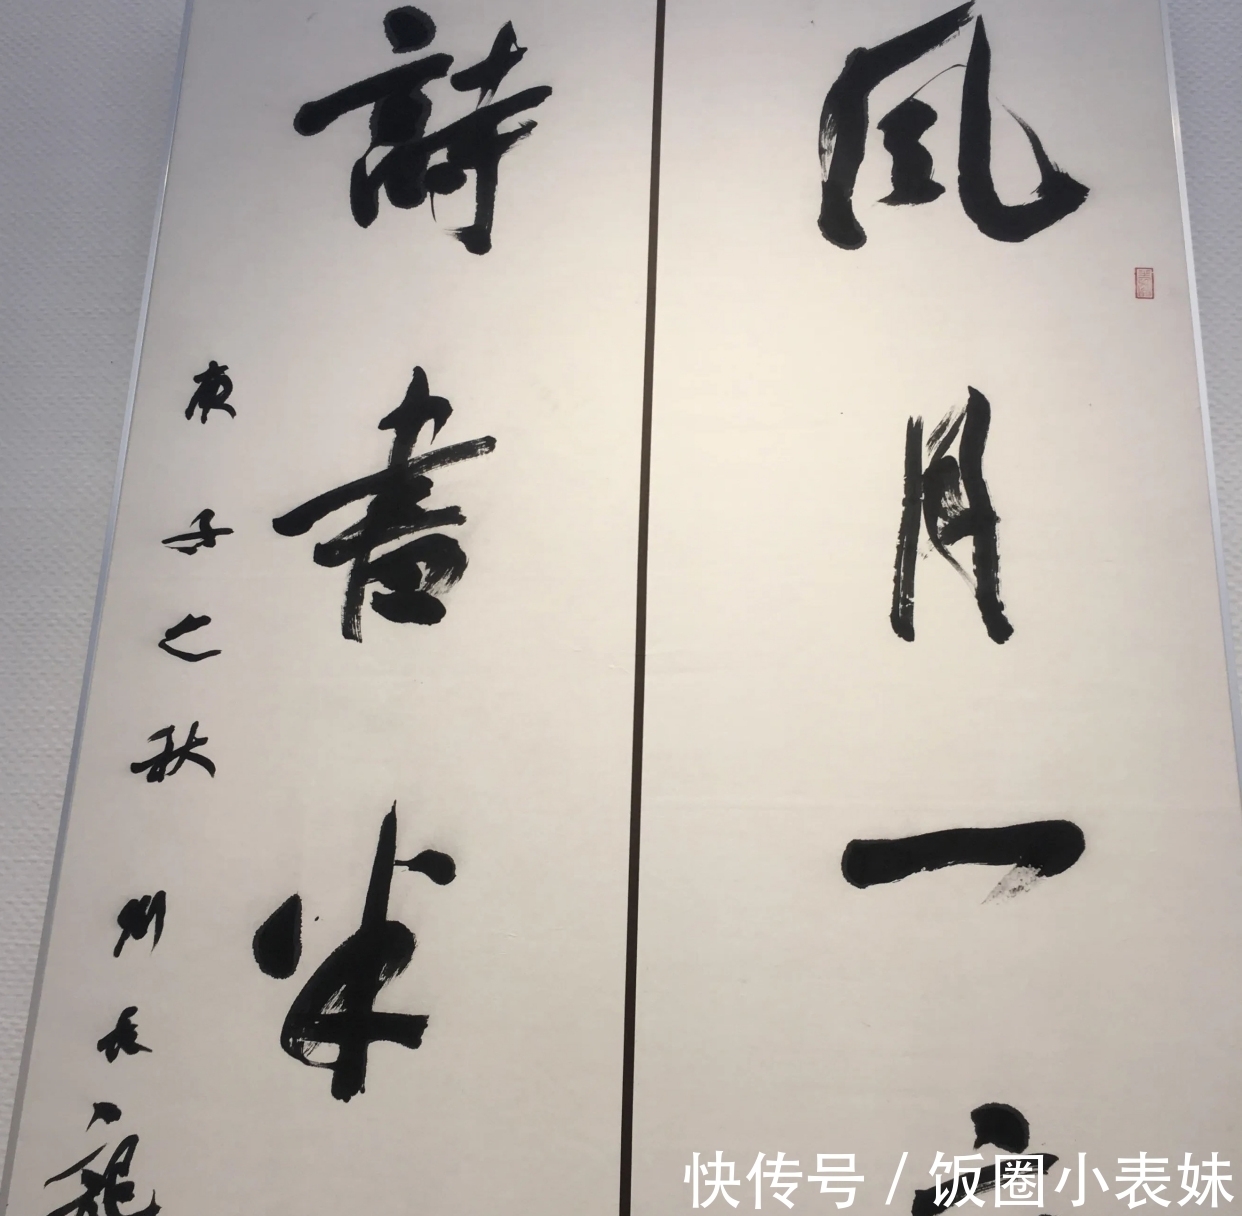 風月一
詩書半
庚子之秋 劉長龍
快传号 / 饭圈小表妹